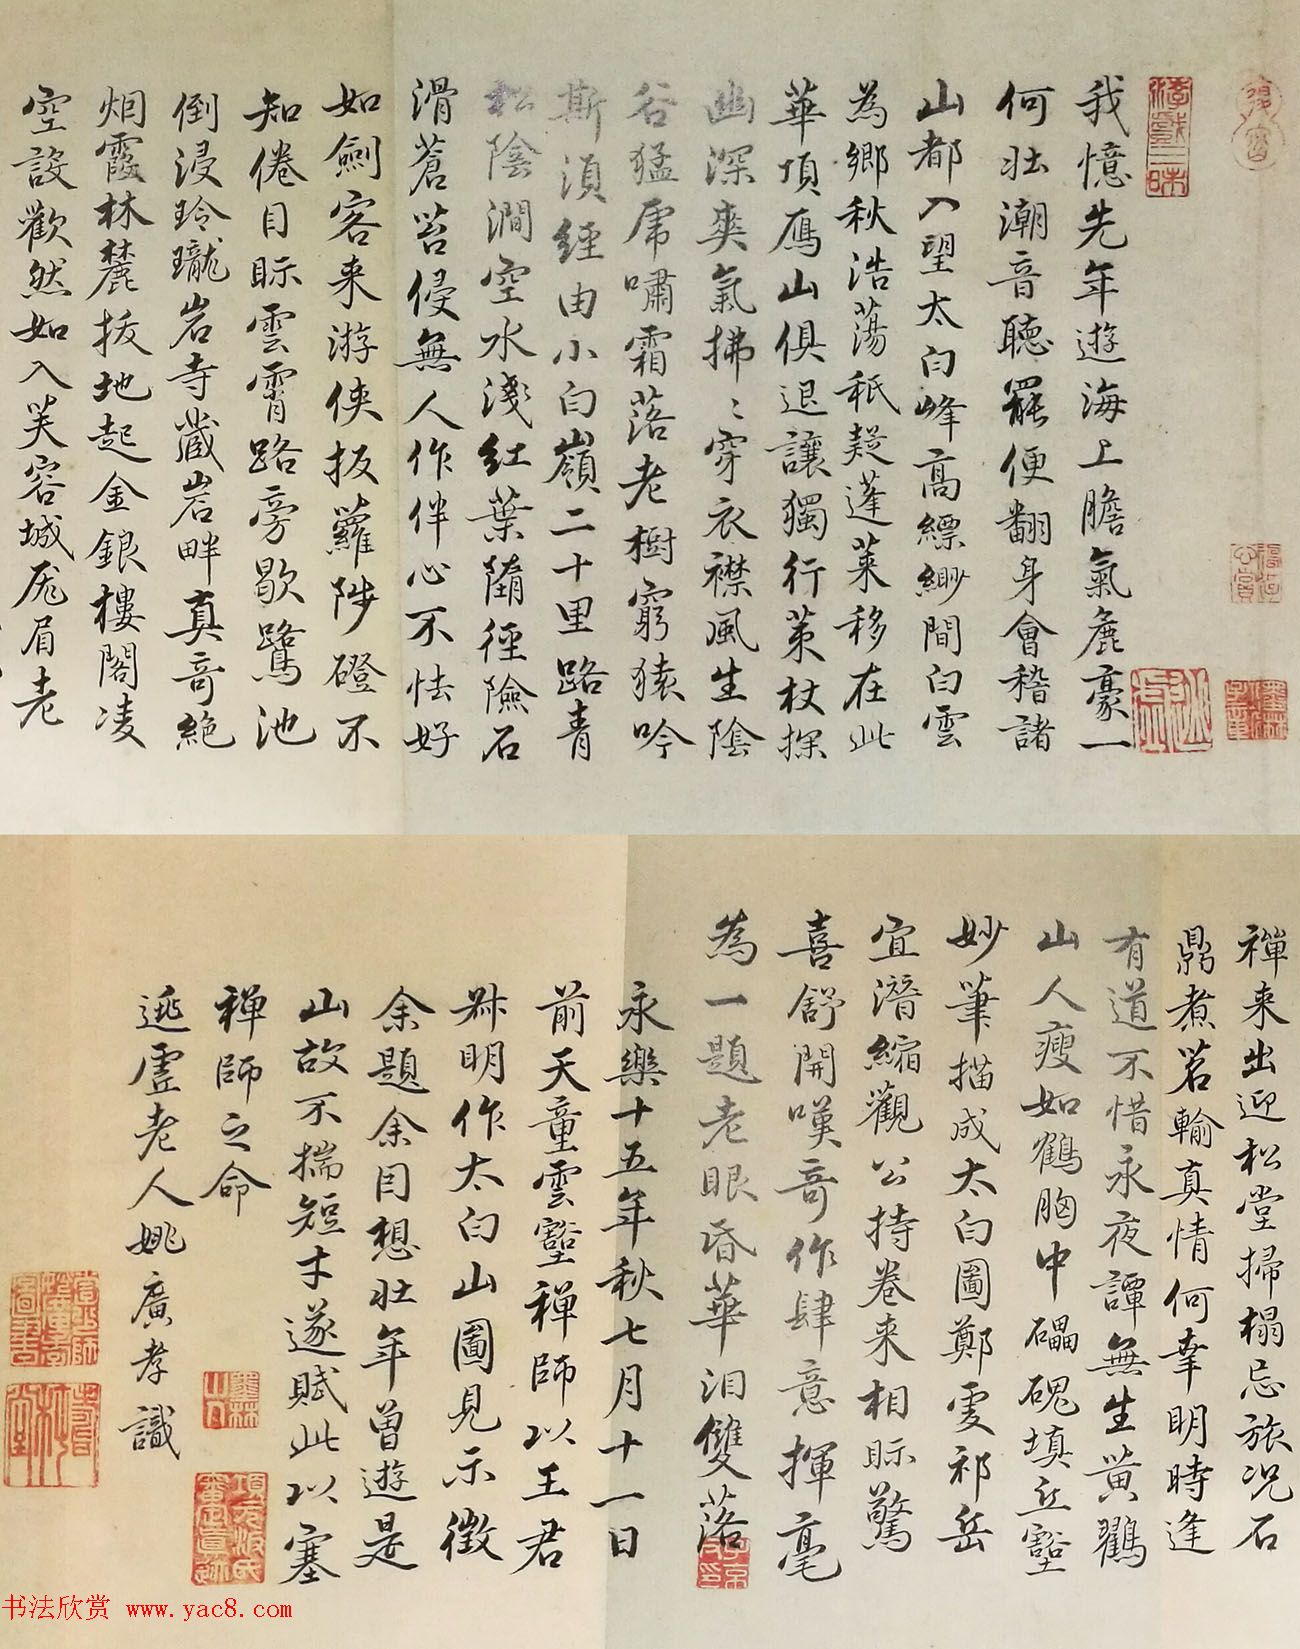 我憶先年遊海上膽氣麁豪一
何壯潮音聽罷便翻身會稽諸
山都入望太白峰高縹緲間白雲
為鄉秋浩蕩秖疑蓬萊移在此
華頂鴈山俱退讓獨行策杖探
幽深爽氣拂〻穿衣襟風生陰
谷猛虎嘯霜落老樹窮猿吟
斯湏經由小白嶺二十里路青
松陰澗空水淺紅葉墮徑險石
滑蒼苔侵無人作伴心不怯好
如劍客来游俠扳蘿陟磴不
知倦目眎雲霄路旁歇鷺池
倒浸玲瓏岩寺藏岩畔真奇絕
烟霞林麓拔地起金銀樓閣凌
空設歡然如入芙容城厖眉老
禪来出迎松堂掃榻忘旅况石
鼎煮茗輸真情何幸明時逢
有道不惜永夜譚無生黃鶴
山人瘦如鶴胸中礧磈填丘壑
妙筆描成太白圖鄭虔祁岳
宜潛縮觀公持卷来相眎驚
喜舒開嘆奇作肆意揮毫
為一題老眼昏華泪雙落
永樂十五年秋七月十一日
前天童雲壑禪師以王君
叔明作太白山圖見示徵
余題余因想壯年曾遊是
山故不揣短才遂賦此以塞
禅師之命
逃虛老人姚廣孝識
书法欣赏 www.yac8.com